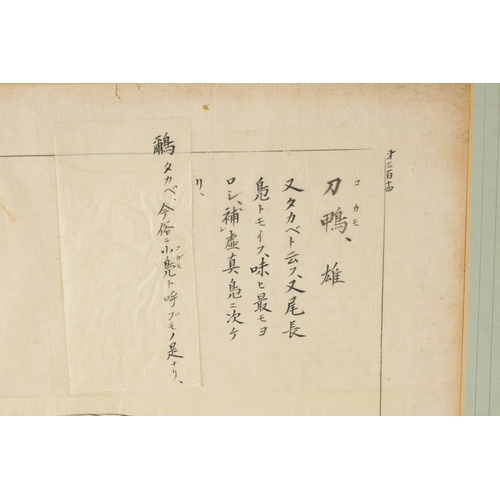 第三百十四
刀鴨、雄
コカモ
又タカベト云フ、又尾長
凫トモイフ、味ヒ最モヨ
ロシ、補」虚真凫ニ次ケ
リ、
鸍タカベ、今俗ニ小凫ト呼ブモノ是ナリ、
コガモ